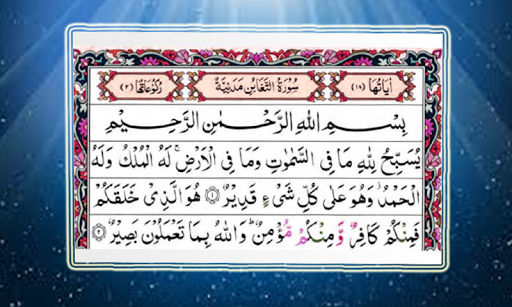 اٰيَاتُهَا (١٨) سُوْرَةُ التَّغَابُنِ مَدَنِيَّةٌ رُكُوْعَاتُهَا (٢)
بِسْمِ اللهِ الرَّحْمٰنِ الرَّحِيْمِ
يُسَبِّحُ لِلّٰهِ مَا فِى السَّمٰوٰتِ وَمَا فِى الْاَرْضِ ۚ لَهُ الْمُلْكُ وَلَهُ
الْحَمْدُ ؗ وَهُوَ عَلٰى كُلِّ شَىْءٍ قَدِيْرٌ ﴿١﴾ هُوَ الَّذِىْ خَلَقَكُمْ
فَمِنْكُمْ كَافِرٌ وَّ مِنْكُمْ مُّؤْمِنٌ ؕ وَاللهُ بِمَا تَعْمَلُوْنَ بَصِيْرٌ ﴿٢﴾